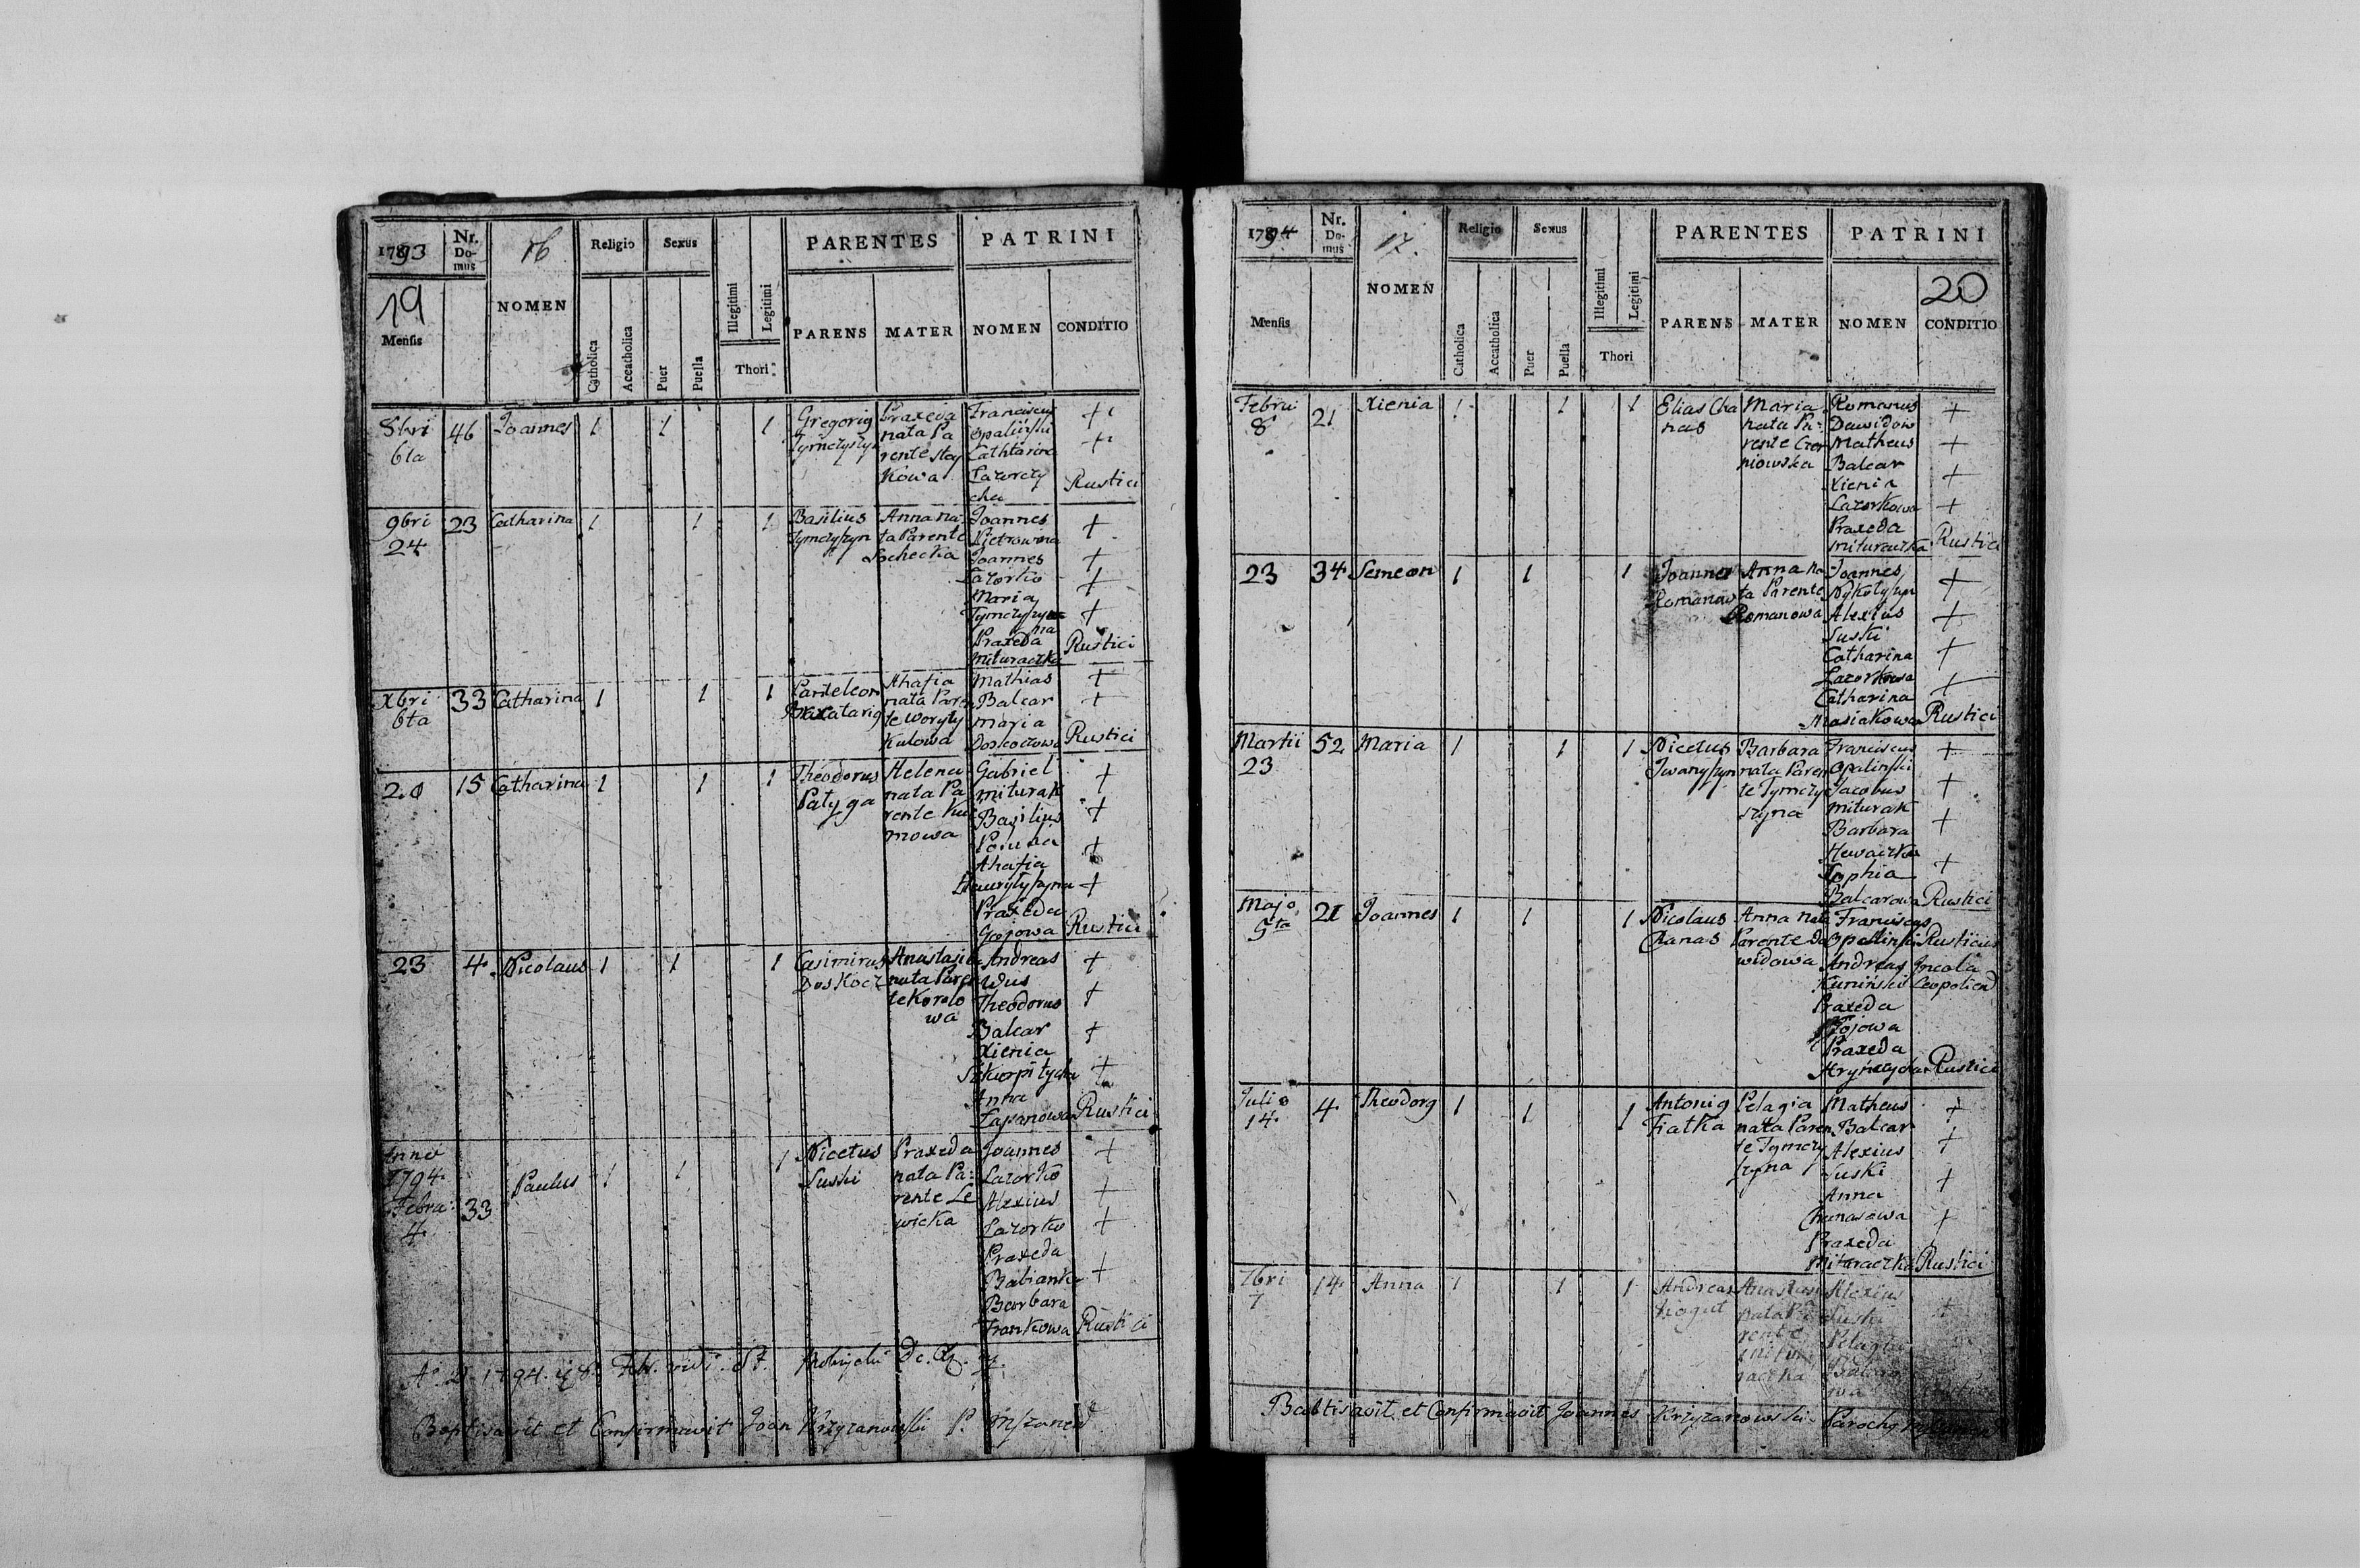 1793
Nr. Domus
16
Religio
Sexus
PARENTES
PATRINI
19
Mensis
NOMEN
Catholica
Accatholica
Puer
Puella
Illegitimi
Legitimi
Thori
PARENS
MATER
NOMEN
CONDITIO
8bri 6ta
46
Joannes
1
1
1
Gregorig
Praxeda
nata Pa
rente
kowa
Franciscus
Opaliński
Cathtarina
Lazorczy
cha
+
+
Rustici
9bri
24
23
Catharina
1
1
1
Basilius
Tymczyszyn
Anna na
ta Parente
Sochecka
Joannes
Pietrowina
Joannes
Lazorko
Maria
Tymczyszyn
na
Praxeda
Mituraczka
+
+
+
+
Rustici
Xbri
6ta
33
Catharina
1
1
1
Panteleon
Ahafia
nata Paren
te Woryty
kulowa
Mathias
Balcar
Maria
Doskoczowa
+
+
Rustici
20
15
Catharina
1
1
1
Theodorus
Patyga
Helena
nata Pa
rente Kli
mowa
Gabriel
Miturak
Basilius
Ahafia
Praxeda
Gojowa
+
+
+
+
Rustici
23
4
Nicolaus
1
1
1
Casimirus
Doskocz
Anastasia
nata Paren
te Korolo
wa
Andreas
Wus
Theodorus
Balcar
Xienia
Szkorpitycha
Anna
Zapanowa
+
+
+
+
Rustici
Anno
1794
Febra:
4
33
Paulus
1
1
1
Nicetus
Suski
Praxeda
nata Pa:
rente Le
wicka
Joannes
Lazorko
Alexius
Lazorko
Praxeda
Babianka
Barbara
Frankowa
+
+
+
+
Rustici
Baptisavit et Confirmavit Joan Krzyzanowski P.
1794
Nr. Domus
17.
Religio
Sexus
PARENTES
PATRINI
20
Mensis
NOMEN
Catholica
Accatholica
Puer
Puella
Illegitimi
Legitimi
Thori
PARENS
MATER
NOMEN
CONDITIO
Febru
8
21
Xienia
1
1
1
Elias Cha
nas
Maria
nata Pa:
rente Czer
niowska
Romanus
Dawidow
Matheus
Balcar
Xienia
Lazorkowa
Praxeda
Mituraczka
+
+
+
+
Rustici
23
34
Semeon
1
1
1
Joannes
Romanow
Anna na
ta Parente
Romanowa
Joannes
Nykołyszyn
Alexius
Suski
Catharina
Lazorkowa
Catharina
Masiakowa
+
+
+
+
Rustici
Martii
23
52
Maria
1
1
1
Nicetus
Iwanyszyn
Barbara
nata Paren
te Tymczy
szyna
Franciscus
Opalinski
Jacobus
Miturak
Barbara
Hewaczka
Zophia
Balcarowa
+
+
+
+
Rustici
Majo
5ta
21
Joannes
1
1
1
Nicolaus
Chanas
Anna nata
Parente Da
widowa
Franciscus
Opalinski
Andreas
Kuninski
Praxeda
Gojowa
Praxeda
Hrynczycha
Rusticus
Incola
Leopoliend
Rustici
Julio
14
4
Theodorg
1
1
1
Antonig
Fiatka
Pelagia
nata Paren
te Tymczy
szyna
Matheus
Balcar
Alexius
Suski
Anna
Chanasowa
Praxeda
Mituraczka
+
+
+
+
Rustici
7bri
7
14
Anna
1
1
1
Andreas
Kogut
nata Pa
rente
Mitu
raczka
Alexius
Suski
Pelagia
Balcaro
wa
+
Baptisavit et Confirmavit Joannes Krzyzanowski Parochg